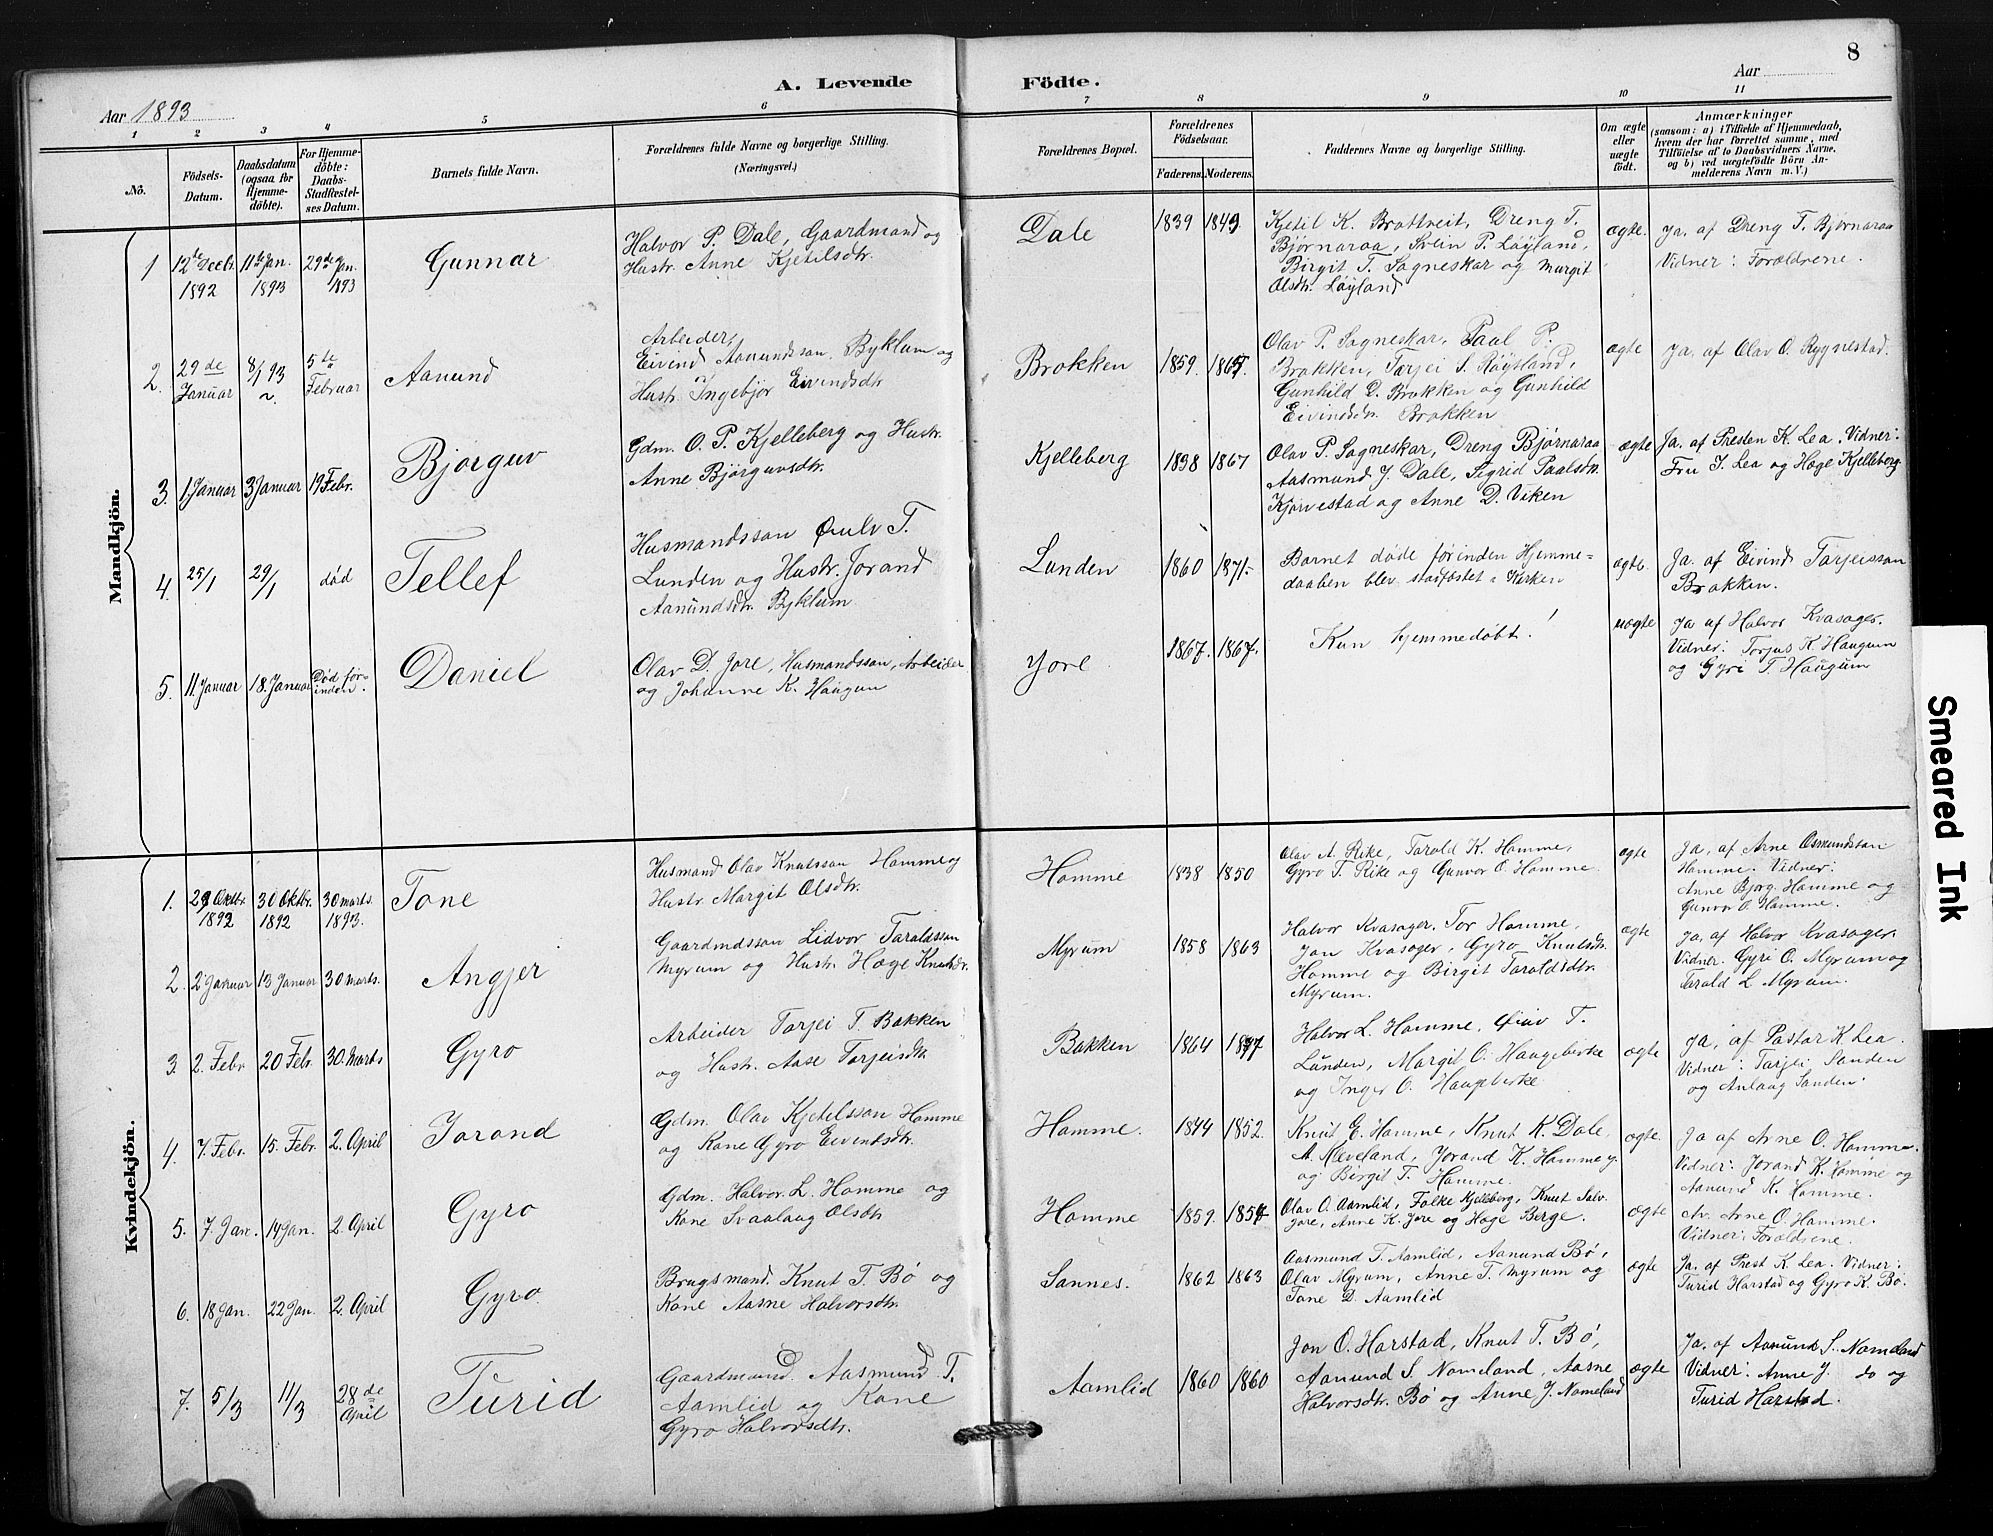 8
A. Levende Födte.
Aar 1893
Aar
1 2 3 4 5 6 7 8 9 10 11
No.
Födsels-Datum.
Daabsdatum (ogsaa for Hjemme-döbte).
For Hjemme-döbte: Daabs-Stadfæstel-ses Datum.
Barnets fulde Navn.
Forældrenes fulde Navne og borgerlige Stilling.
(Næringsvei.)
Forældrenes Bopæl.
Forældrenes Födselsaar.
Faderens. Moderens.
Faddernes Navne og borgerlige Stilling.
Om ægte eller uægte födt.
Anmærkninger
(saasom: a) i Tilfælde af Hjemmedaab,
hvem der har forrettet samme, med
Tilföielse af to Daabsvidners Navne,
og b) ved uægtefödte Börn An-
melderens Navn m. V.)
Mandkjön.
1 12te Decbr. 1892 11te Jan. 1893 29de Jan. 1893 Gunnar
Halvor P. Dale, Gaardmand og
Hustr. Anne Kjetilsdtr.
Dale 1839 1849
Kjetil K. Brottveit, Dreng T.
Bjørnaraa, Svein P. Løyland,
Birgit T. Sagneskar og Margit
Olsdtr. Løyland
ægte.
Ja. af Dreng T. Bjørnaraa
Vidner: Forældrene.
2. 29de Januar 8/1 93 5te Februar Aanund
Arbeider,
Eivind Aanundsson Byklum og
Hustr. Ingebjør Eivindsdtr
Brokken 1859.
Olav P. Sagneskar, Paal P.
Brokken, Tarjei S. Røysland,
Gunhild D. Brokken og Gunhild
Eivindsdtr. Brokken
ægte
Ja. af Olav O. Rygnestad.
3. 1. Januar 3 Januar 19 Febr. Bjorguv
Gdm. O. P. Kjelleberg og Hustr.
Anne Bjørguvsdtr.
Kjelleberg 1838 1867
Olav P. Sagneskar, Dreng Bjørnaraa
Aasmund J. Dale, Sigrid Paalsdtr.
Kjørvestad og Anne D. Viken
ægte
Ja. af Presten K. Lea. Vidner:
Fru J. Lea og Hæge Kjelleberg.
4. 25/1 29/1 död Tellef
Husmandssøn Øiulv T.
Lunden og Hustr. Jorand
Aanundsdtr. Byklum
Lunden 1860 1871.
Barnet døde førinden Hjemme=
daaben blev stadfæstet i Kirken
ægte.
Ja. af Eivind Tarjeisson
Brokken.
5. 11. Januar 18. Januar Død før-inden. Daniel
Olav D. Jore, Husmandssøn, Arbeider
og Johanne K. Haugum
Jore 1867. 1867.
Kun hjemmedøbt!
uægte
Ja af Halvor Kvasager.
Vidner: Torjus K. Haugum
og Gyri T. Haugum
Kvindekjön.
1. 29 Oktbr. 1892 30 Oktbr. 1892 30 marts. 1893. Tone
Husmand Olav Knutsson Homme og
Hustr. Margit Olsdtr.
Homme 1838 1850
Olav A. Rike, Tarald K. Homme,
Gyro T. Rike og Gunvor O. Homme
ægte
Ja, af Arne Osmundsson
Homme. Vidner:
Anne Bjorg. Homme og
Gunvor O. Homme.
2. 2 Januar 13 Januar 30 marts. Angjer
Gaardmdssøn Lidvor Taraldssøn
Myrum og Hustr. Hæge Knutsdtr.
Myrum 1858 1863
Halvor Kvasager. Tor Homme,
Jon Kvasager, Gyro Knutsdtr.
Homme og Birgit Taraldsdtr.
Myrum.
ægte
Ja, af Halvor Kvasager.
Vidner. Gyri O. Myrum og
Tarald L. Myrum.
3. 2. Febr 20 Febr. 30. Marts Gyro
Arbeider Tarjei T. Bakken
og Hustr. Aase Tarjeisdtr.
Bakken 1864
Halvor L. Homme, Øiuv T.
Lunden, Margit O. Haugebirke
og Inger O. Haugebirke
ægte
Ja, af Pastor K. Lea.
Vidner: Tarjei Sanden
og Anlaug Sanden.
4. 7. Febr. 15. Febr. 2. April Jorand
Gdm. Olav Kjetelssøn Homme
og Kone Gyro Eivendsdtr.
Homme. 1844 1852.
Knut E. Homme, Knut K. Dale,
A. Kleveland, Jorand K. Homme og
og Birgit T. Homme.
ægte.
Ja af Arne O. Homme.
Vidner: Jorand K. Homme og
Aanund K. Homme.
5. 7. Jan. 14 Jan. 2. April Gyro
Gdm. Halvor L. Homme og
Kone Svaalaug Olsdtr
Homme 1859.
Olav O. Aamlid, Folke Kjelleberg, Knut Salv.
Jore, Anne K. Jore og Hæge Berge.
ægte
Av. Arne O. Homme.
Vidner: Forældrene.
6. 18 Jan. 22 Jan. 2. April Gyro.
Brugsmand. Knut T. Bø og
Kone Aasne Halvorsdtr.
Sannes. 1862 1863
Aasmund T. Aamlid, Aanund Bø,
Olav Myrum, Anne T. Myrum og
Tone D. Aamlid
ægte
Ja. af Prest K. Lea. Vidner:
Turid Harstad og Gyro K. Bø.
7. 5/3 11/3 28de April Turid
Gaardmand. Aasmund T.
Aamlid og Kone
Gyro Halvorsdtr.
Aamlid 1860 1860
Jon O. Harstad, Knut T. Bø,
Aanund S. Nomeland, Aasne
Halvorsdtr. Bø og Anne J. Nomeland
ægte
Ja. af Aanund S. Nomeland
Vidner: Anne J. do og
Turid Harstad.
Smeared Ink